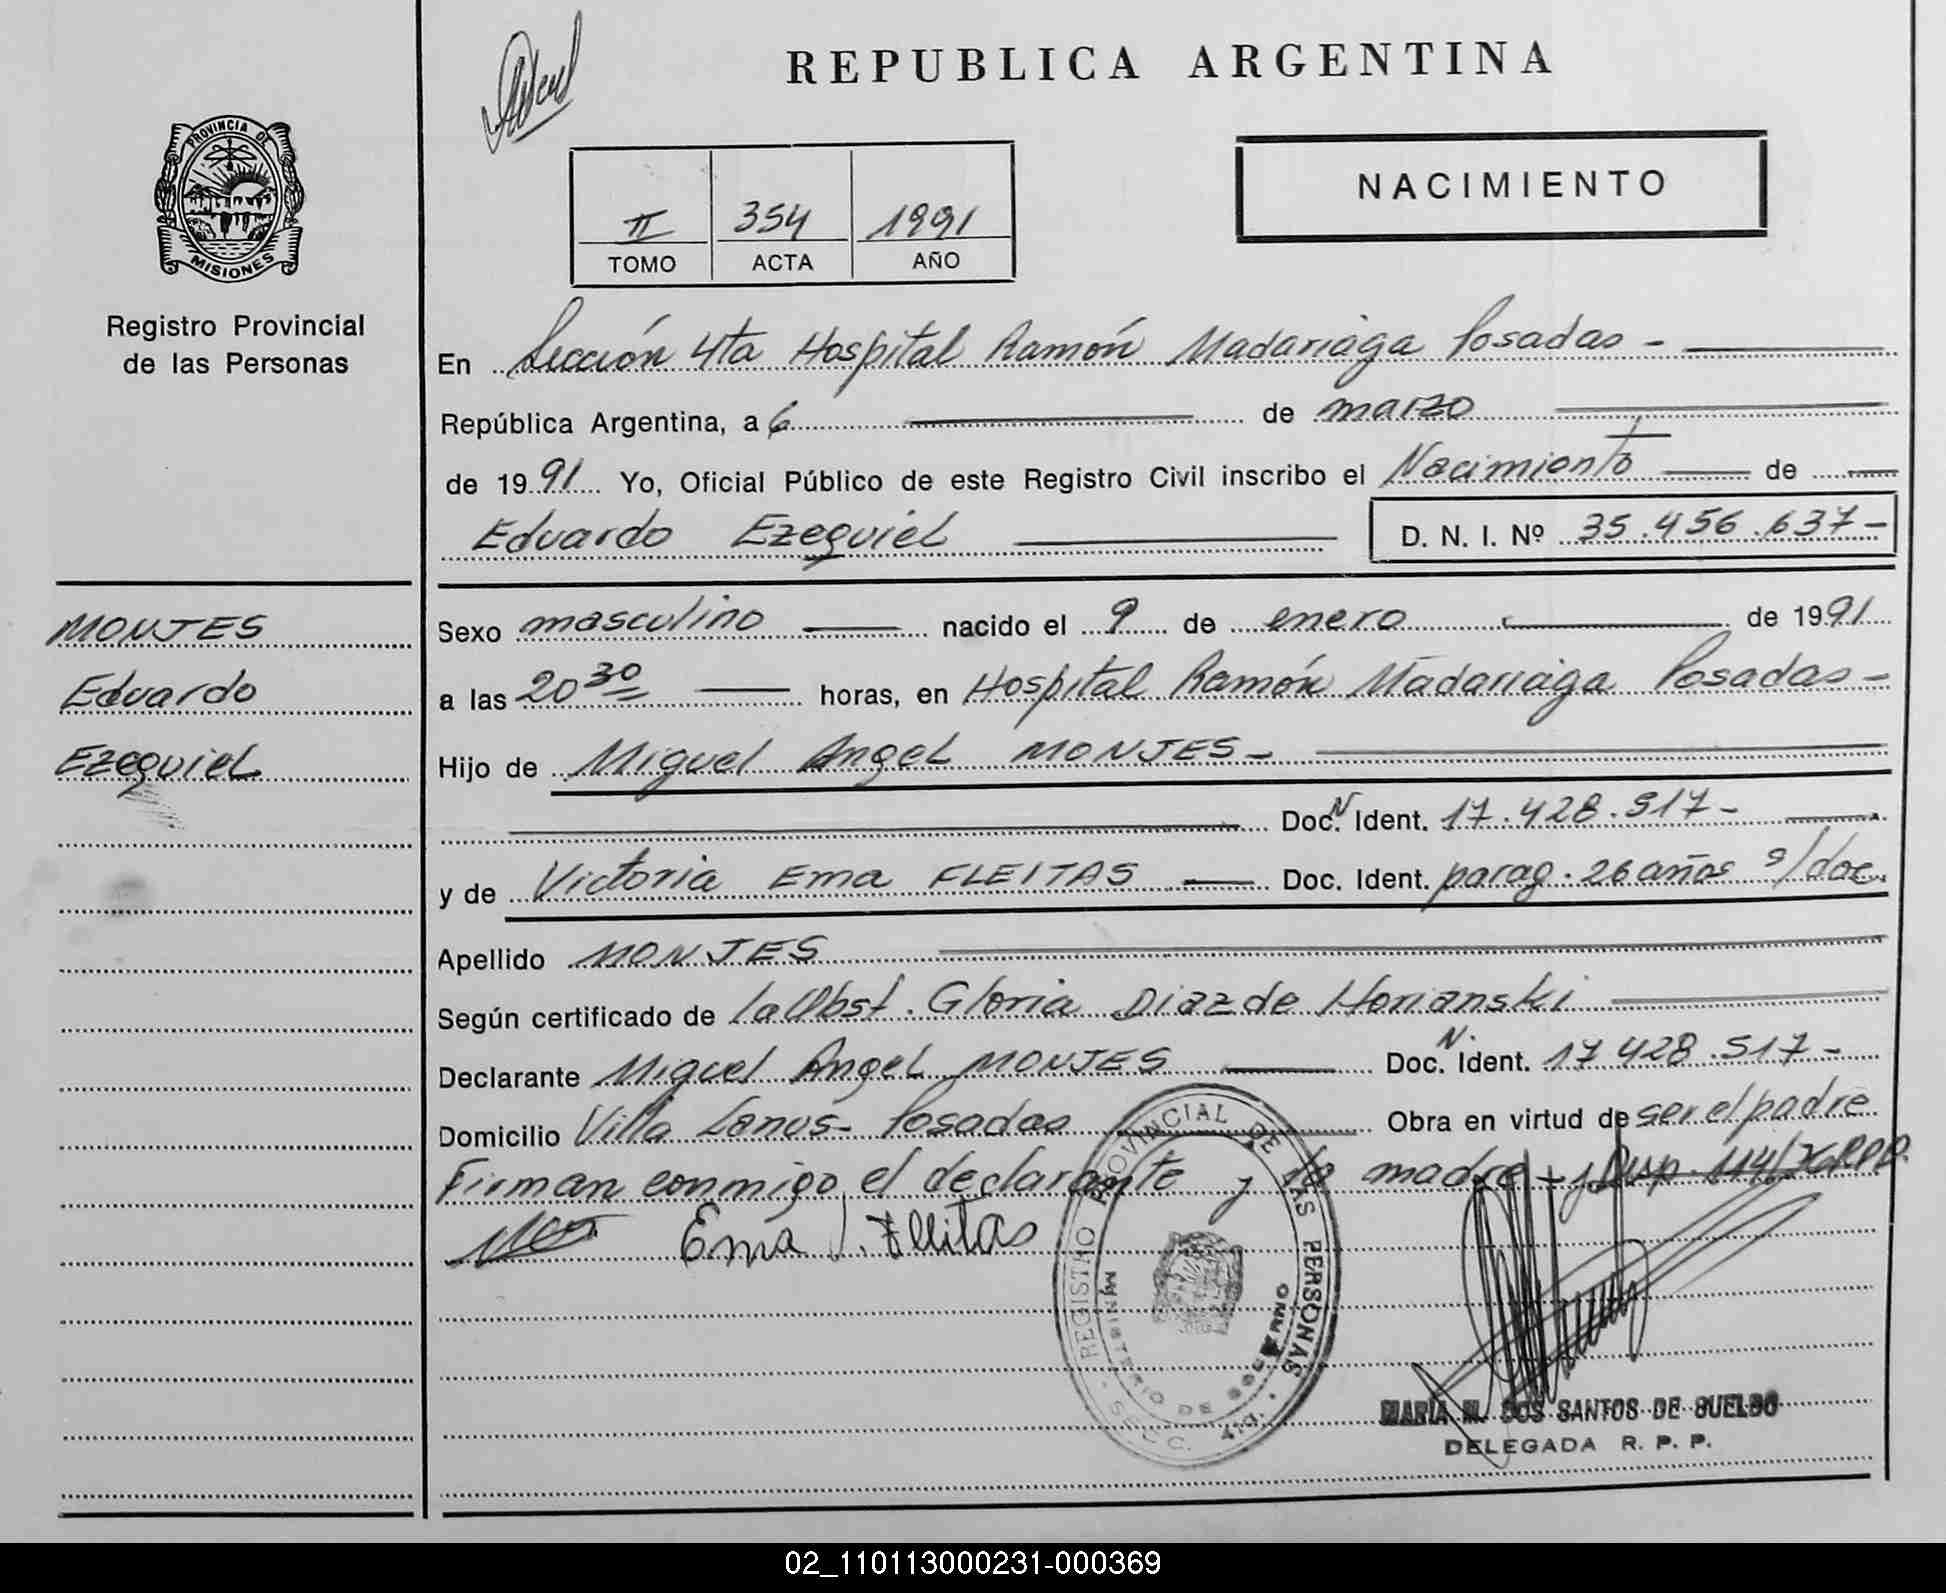 REPUBLICA ARGENTINA
PROVINCIA DE
MISIONES
Registro Provincial
de las Personas
II 354 1991
TOMO ACTA AÑO
NACIMIENTO
En Sección 4ta Hospital Ramón Madariaga Posadas -
República Argentina, a 6 de marzo
de 1991 Yo, Oficial Público de este Registro Civil inscribo el Nacimiento de
Eduardo Ezequiel D. N. I. Nº 35.456.637-
MONJES
Eduardo
Ezequiel
Sexo masculino nacido el 9 de enero de 1991
a las 20 30 horas, en Hospital Ramón Madariaga Posadas-
Hijo de Miguel Angel MONJES-
Doc. N Ident. 17.428.517-
y de Victoria Ema FLEITAS Doc. Ident. parag. 26 años s/doc.
Apellido MONJES
Según certificado de la Obst. Gloria Diaz de Horianski
Declarante Miguel Angel MONJES Doc. N. Ident. 17.428.517-
Domicilio Villa Lanús- Posadas Obra en virtud de ser el padre
Firman conmigo el declarante y la madre - y Disp.
Ema V. Fleitas
REGISTRO PROVINCIAL DE LAS PERSONAS
MINISTERIO DE GOBIERNO
MARIA M. DOS SANTOS DE SUELDO
DELEGADA R. P. P.
02_110113000231-000369